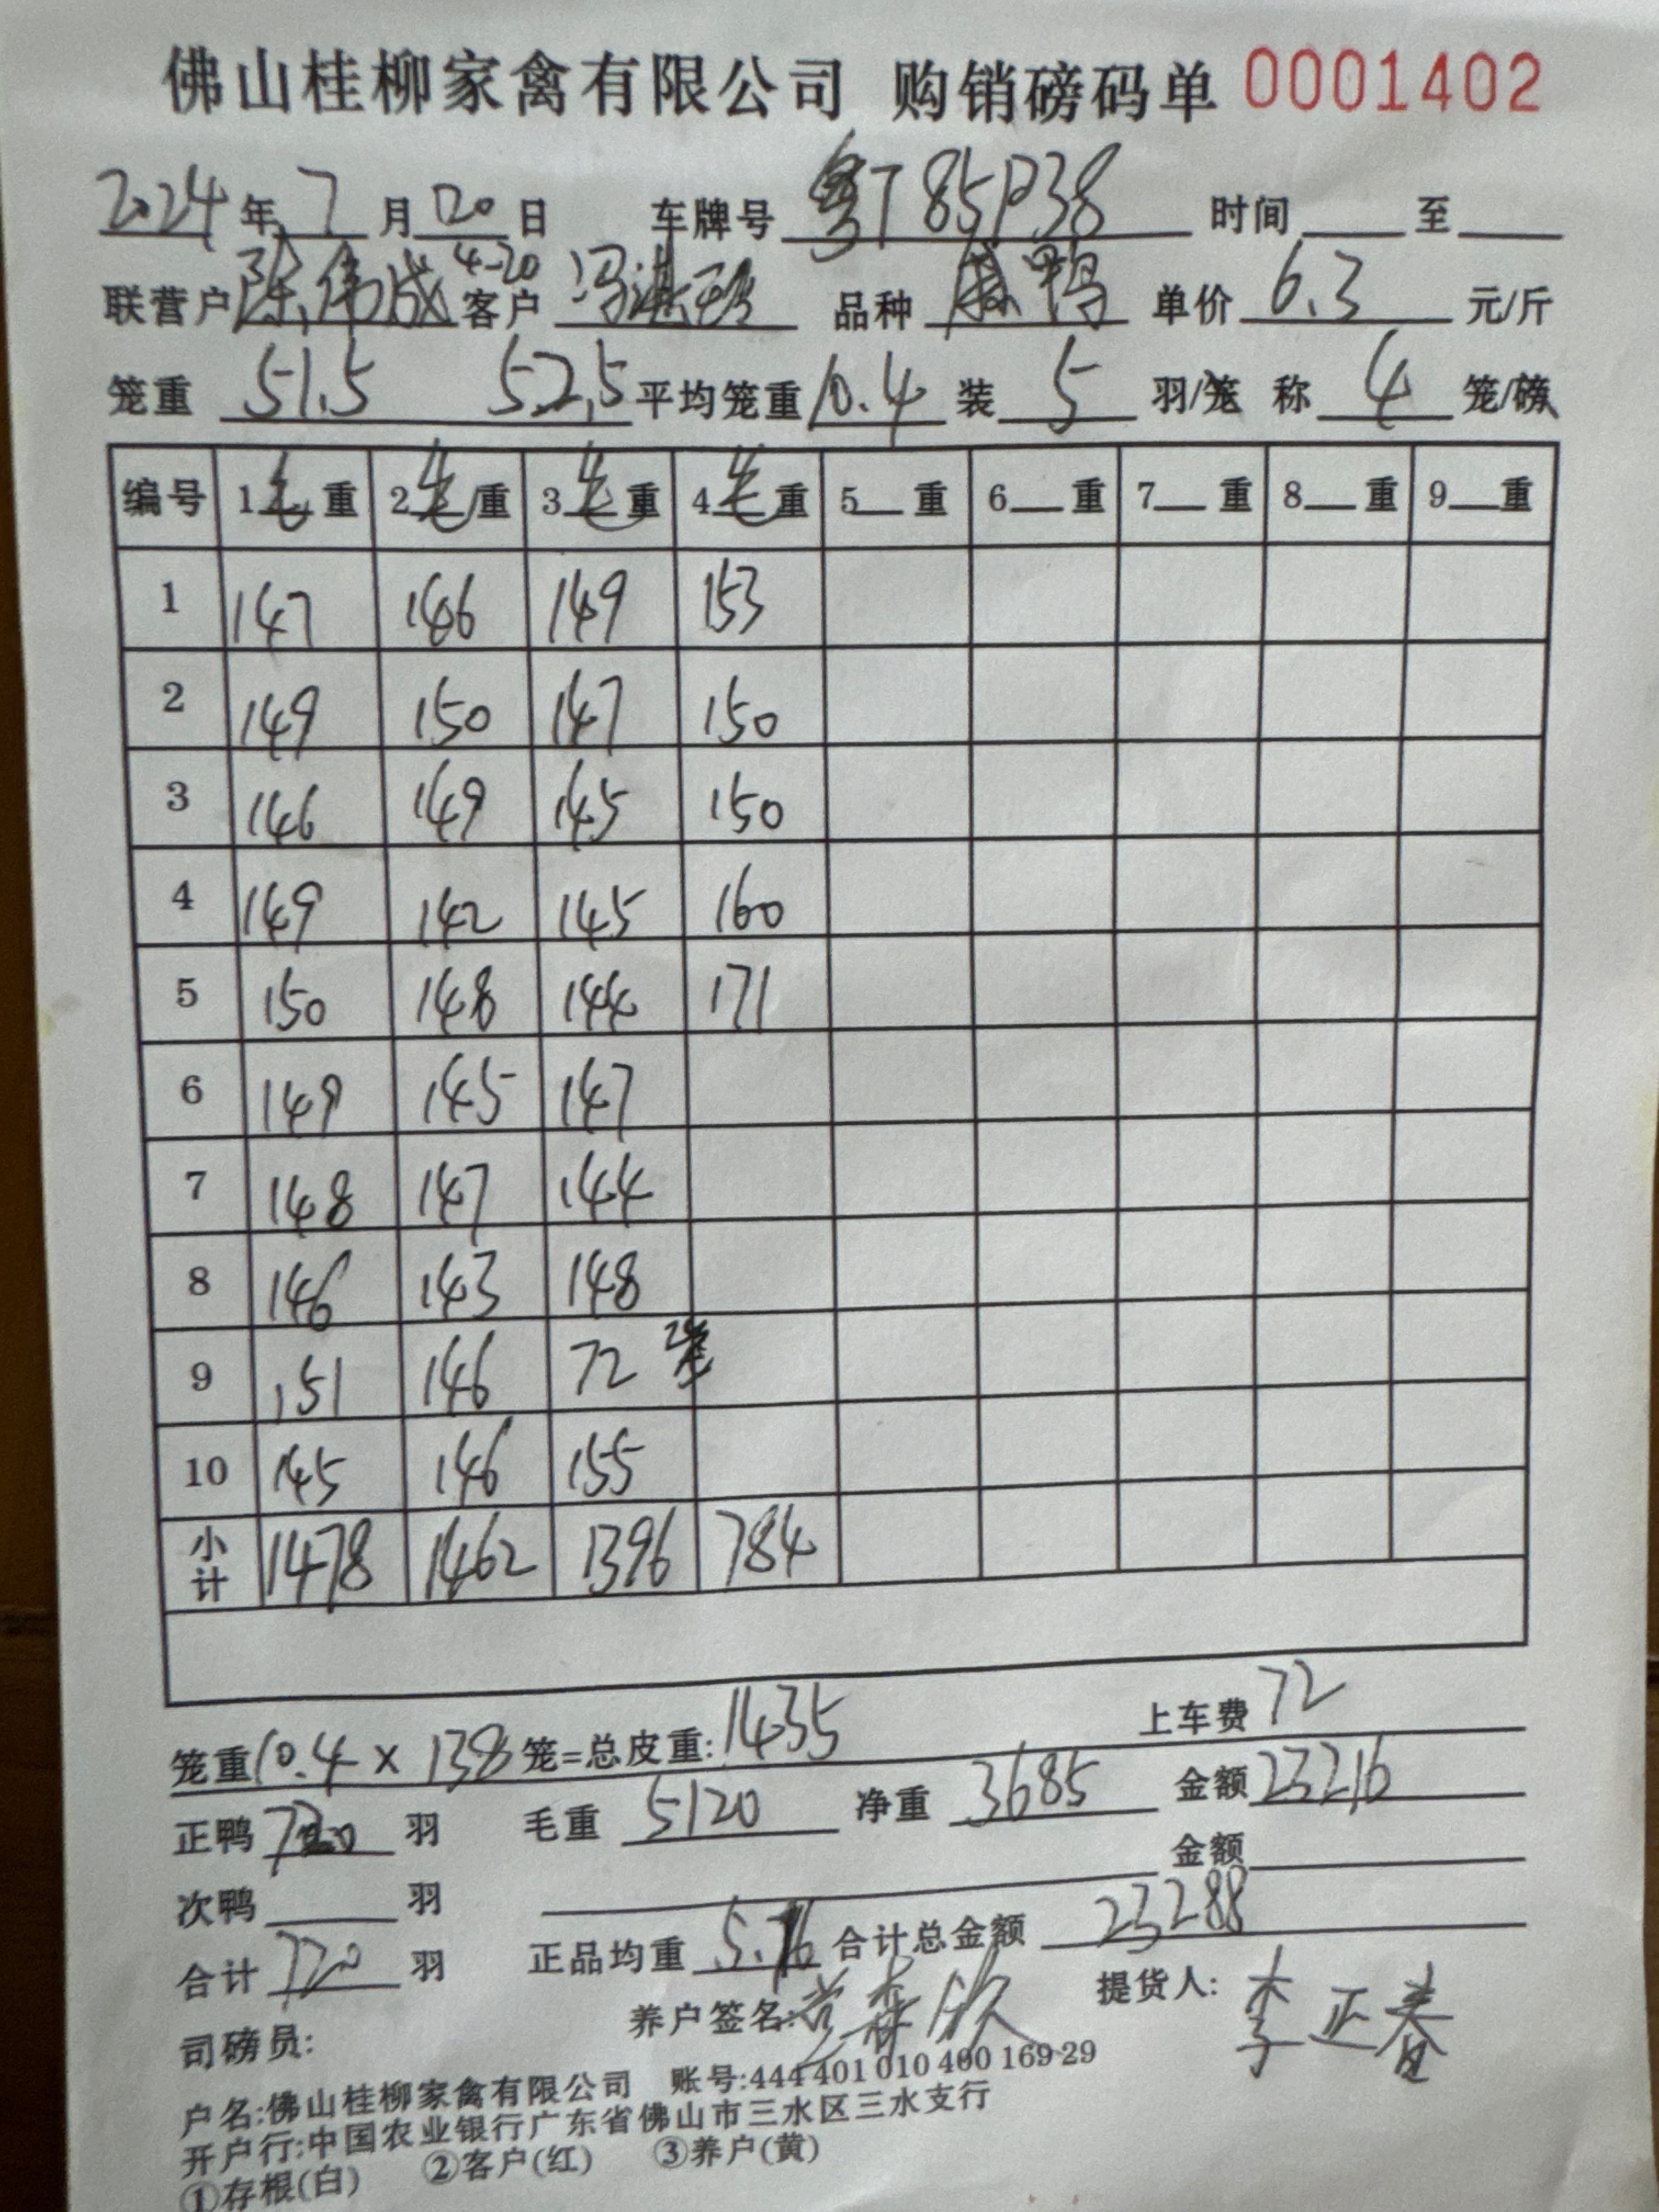 佛山桂柳家禽有限公司 购销磅码单 0001402
2024年7月20日 车牌号 粤T85P38 时间 至
4-20
联营户 陈伟成 客户 冯 品种 麻鸭 单价 6.3 元/斤
笼重 51.5 52.5 平均笼重 10.4 装 5 羽/笼 称 4 笼/磅
编号 1毛重 2毛重 3毛重 4毛重 5 重 6 重 7 重 8 重 9 重
1 147 146 149 153
2 149 150 147 150
3 146 149 145 150
4 149 142 145 160
5 150 148 144 171
6 149 145 147
7 148 147 144
8 146 143 148
9 151 146 72 2笼
10 145 146 155
小计 1478 1462 1396 784
笼重10.4×138笼=总皮重:1435 上车费72
正鸭 720 羽 毛重 5120 净重 3685 金额23216
次鸭 羽 金额
合计 720 羽 正品均重 5. 合计总金额 23288
司磅员: 养户签名: 森欣 提货人: 李正春
户名:佛山桂柳家禽有限公司 账号:444 401 010 400 169 29
开户行:中国农业银行广东省佛山市三水区三水支行
①存根(白) ②客户(红) ③养户(黄)